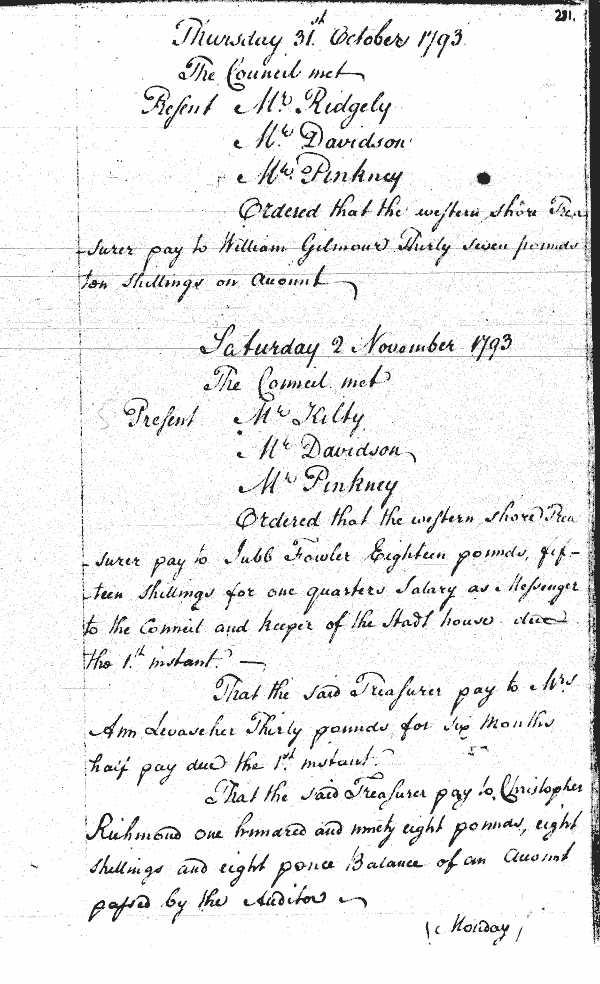 201.
Thursday 31st October 1793
The Council met
Present Mr Ridgely
Mr Davidson
Mr Pinkney
Ordered that the western shore Trea
-surer pay to William Gilmour Thirty seven pounds
ten shillings on Account
Saturday 2 November 1793
The Council met
Present Mr Kilty
Mr Davidson
Mr Pinkney
Ordered that the western shore Trea
-surer pay to Jubb Fowler Eighteen pounds, fif-
-teen shillings for one quarters Salary as Messenger
to the Council and keeper of the Stadt house due
the 1st instant.
That the said Treasurer pay to Mrs
Ann Levascher Thirty pounds for six Months
half pay due the 1st instant.
That the said Treasurer pay to Christopher
Richmond one hundred and ninety eight pounds, eight
shillings and eight pence Balance of an Account
passed by the Auditor
Monday